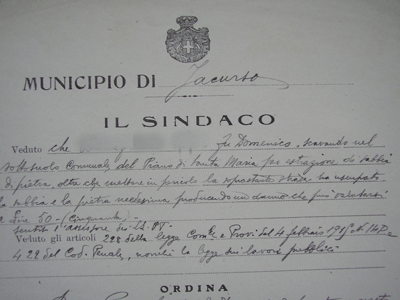 MUNICIPIO DI Jacurso
IL SINDACO
Veduto che fu Domenico, scavando nel
sottosuolo Comunale del Piano di Santa Maria per estrazione di sabbia
di pietra, oltre che mettere in pericolo la soprastante strada, ha usurpato
la sabbia e la pietra producendo un danno che può valutarsi
a Lire 50 - (Cinquanta) -
sentito l'assessore dei LL. PP.
Veduto gli articoli 228 della legge Comle e Provle del 4 febbraio 1915 N. 148 e
422 del Cod. Penale, nonchè la legge sui lavori pubblici
ORDINA